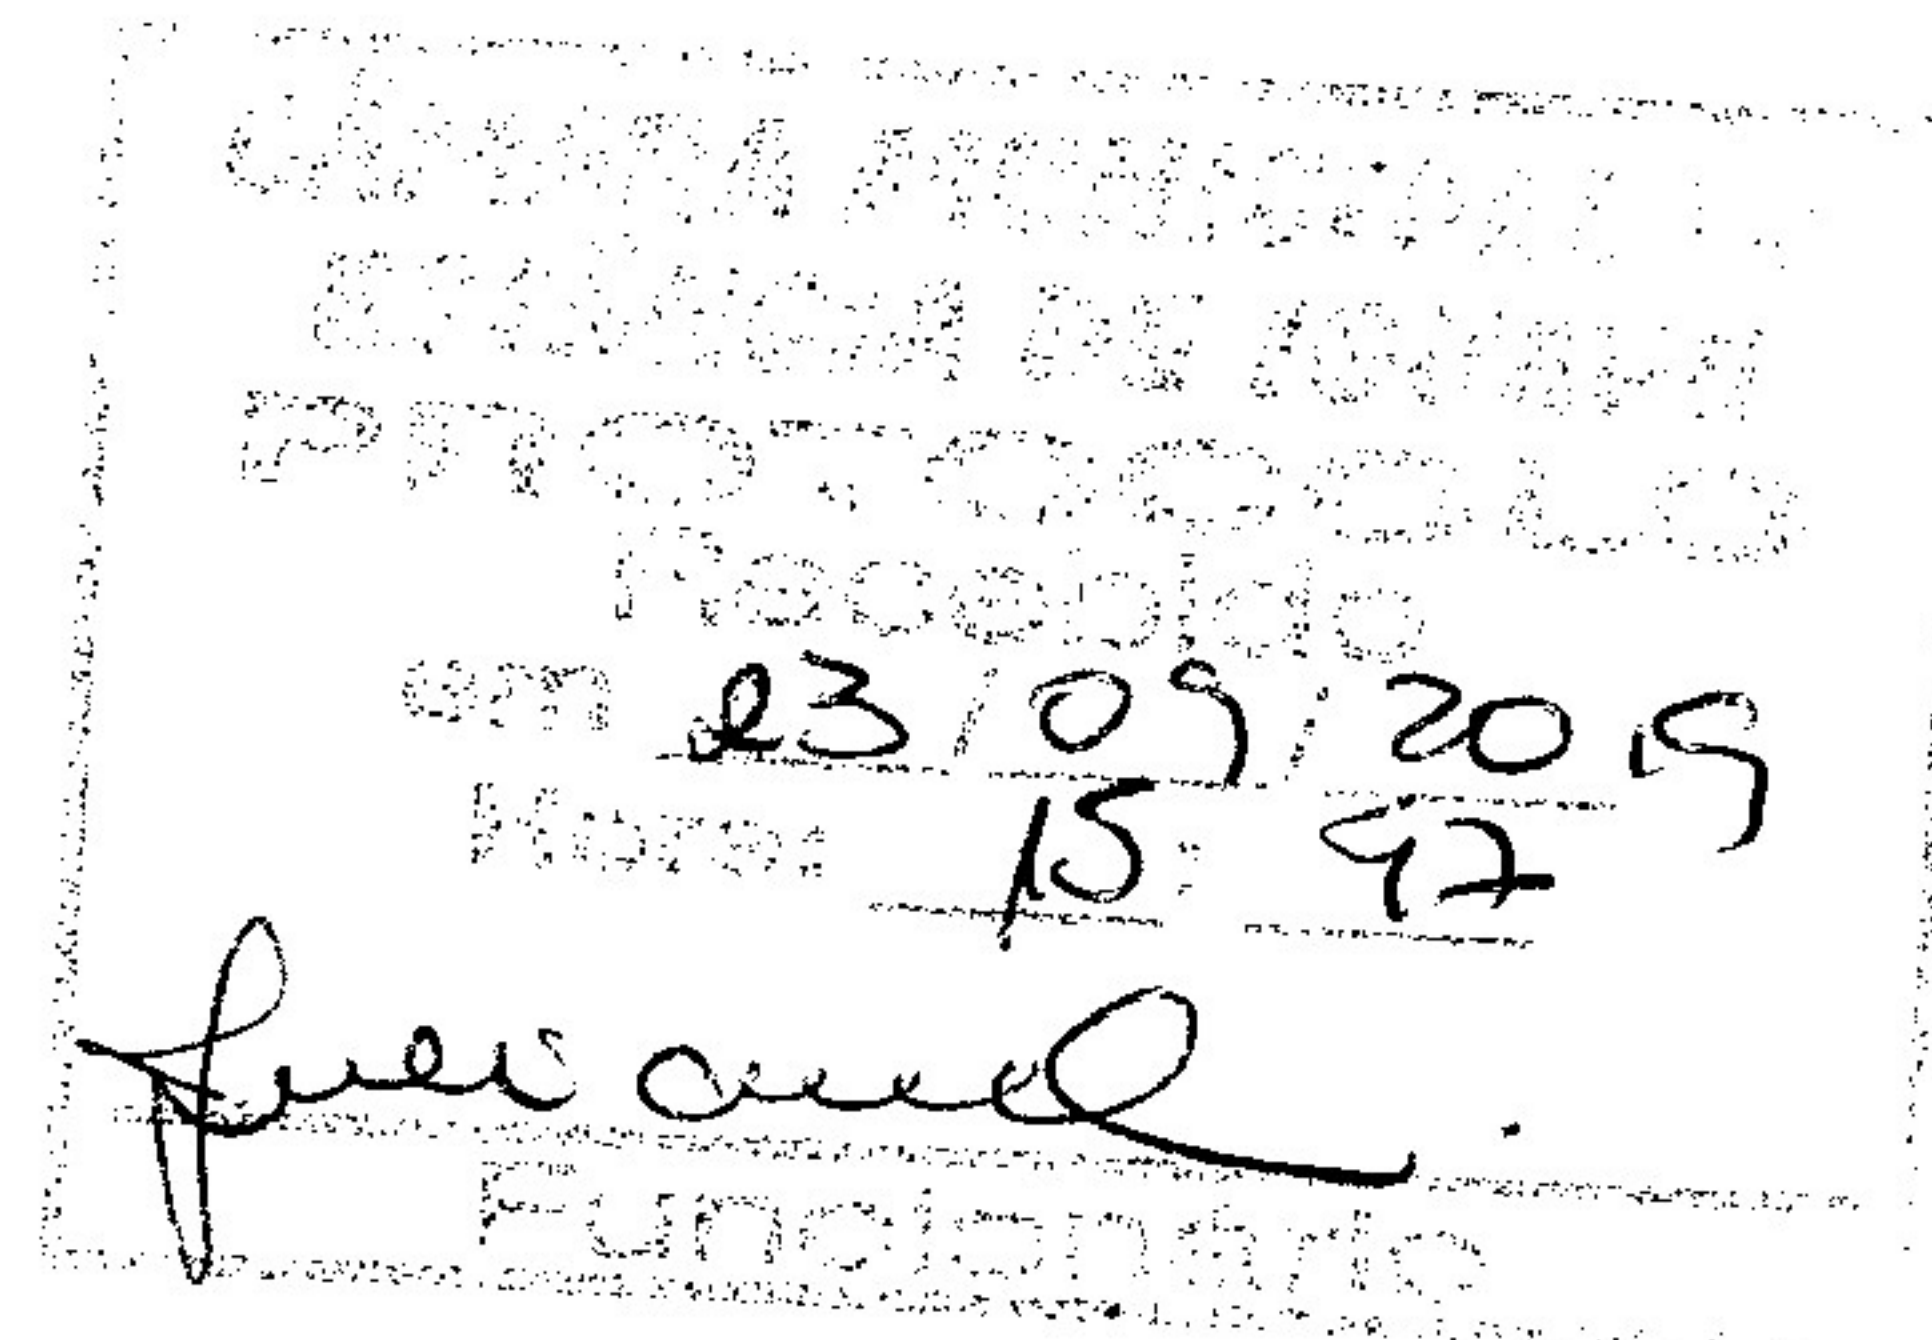 CÂMARA MUNICIPAL
ESTÂNCIA DE
PROTOCOLO
Recebido
em 23/09/2019
Horas 15:47
Funcionário